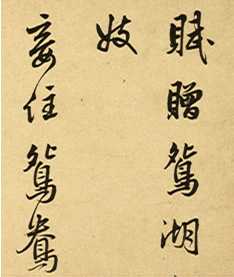 賦贈鴛湖
妓
妾住鴛鴦